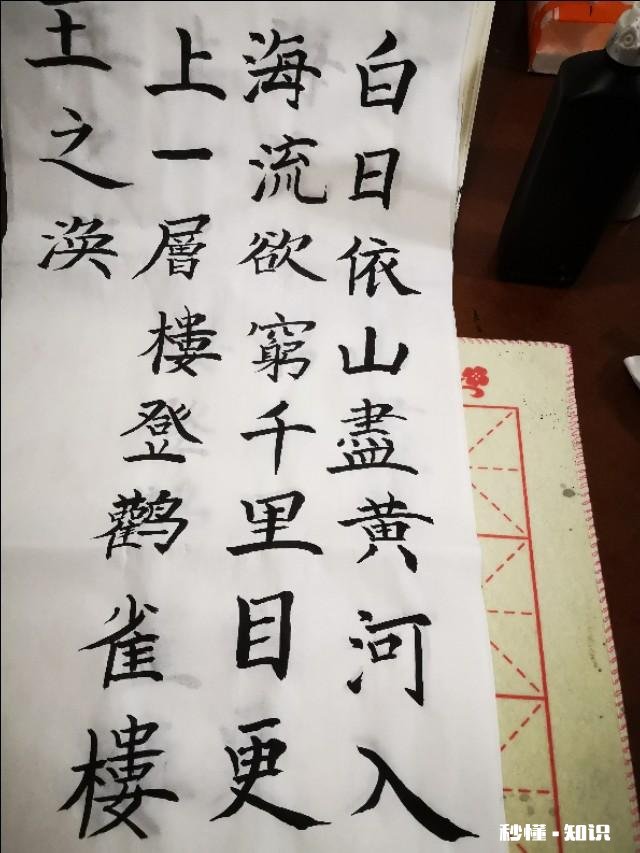 白日依山盡黄河入
海流欲窮千里目更
上一層樓登鹳雀樓
王之涣
秒懂-知识